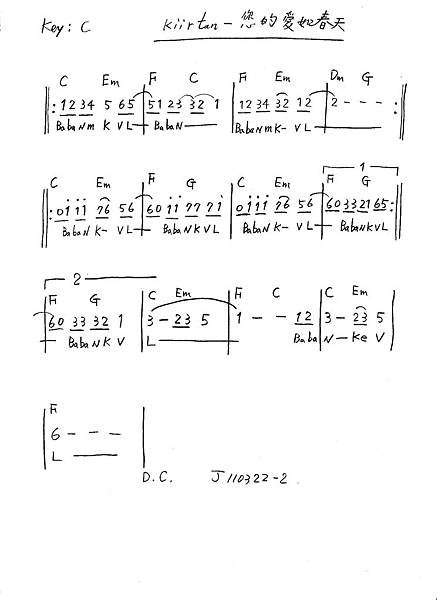 Key: C Kiirtan - 您的愛如春天
C Em F C F Em Dm G
‖: 1234 5 65 | 5123 32 1 | 1234 32 12 | 2 - - - :‖
BabaNm K VL — BabaN — BabaNmK- VL —
1
C Em F G C Em F G
‖: 0i i i 76 56 | 60 i i 77 7i | 0i i i 76 56 | 60332165 :‖
BabaNK- VL — BabaNKVL BabaNK- VL — BabaNKVL
2
F G C Em F C C Em
| 60 33 32 1 | 3 - 23 5 | 1 - - 12 | 3 - 23 5 |
— BabaNK V L — Baba N - Ke V
F
| 6 - - - |
L —
D.C. J110322-2